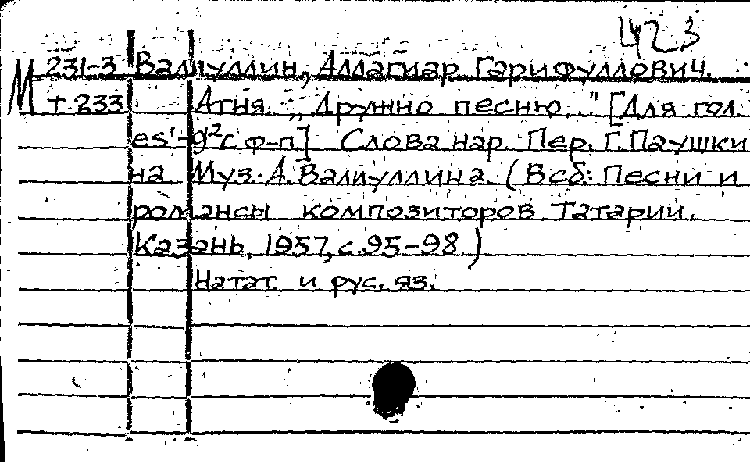 1423
М 231-3 Валиуллин, Аллагиар Гарифуллович.
т 233 Атня. „Дружно песню.." [Для гол.
es'-g²с ф-п] Слова нар. Пер. Г. Паушки
на Муз. А. Валиуллина. (В сб: Песни и
романсы композиторов Татарии.
Казань, 1957, с. 95-98)
На тат. и рус. яз.